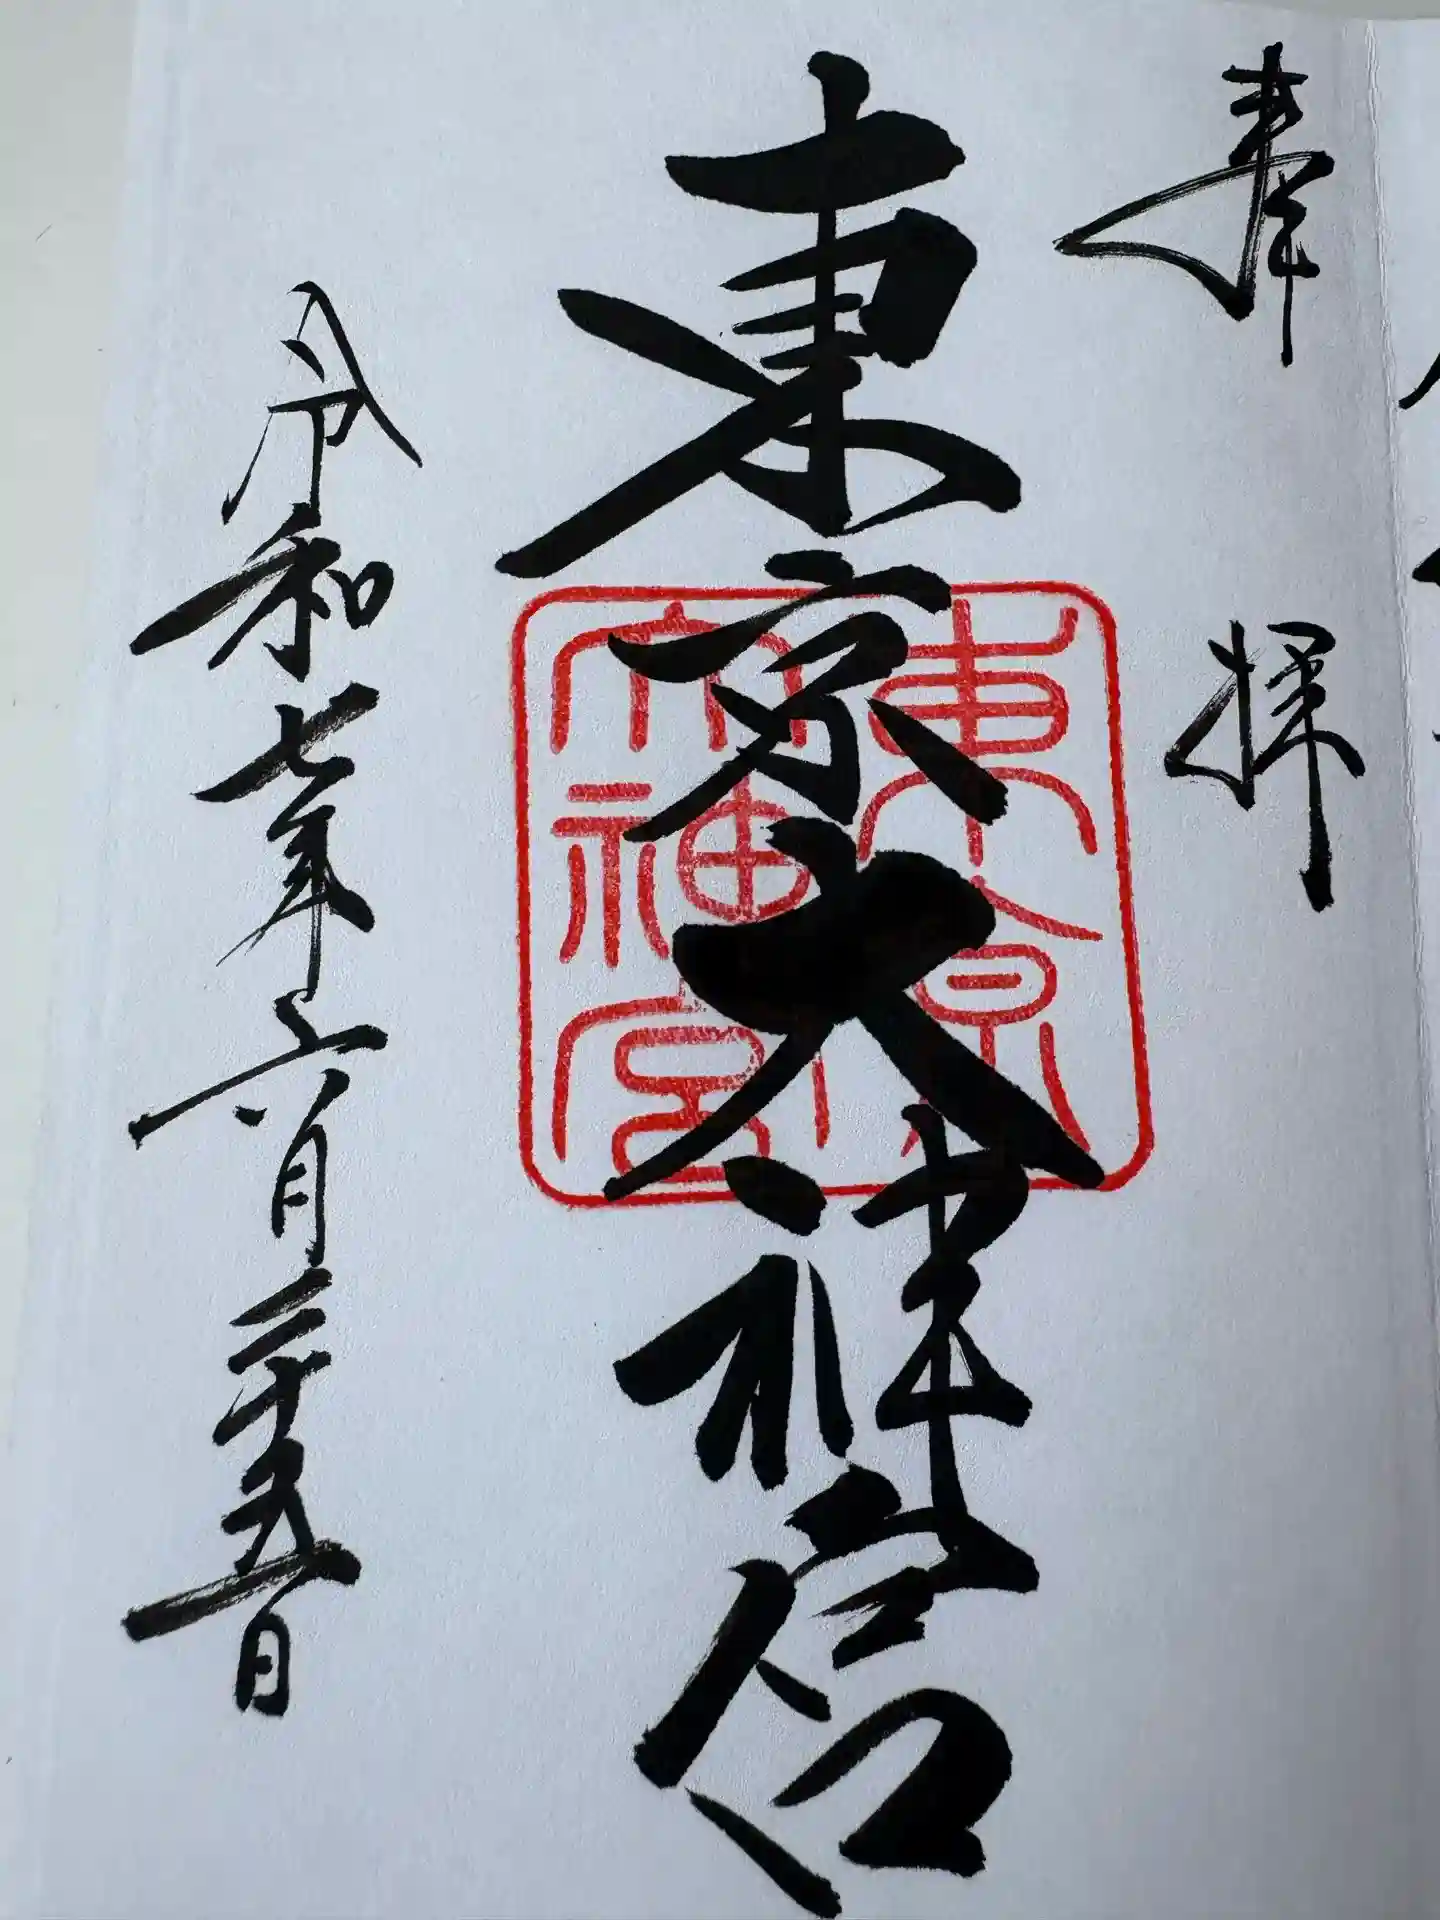 奉拝
東京大神宮
東京大神宮
令和七年六月二十五日